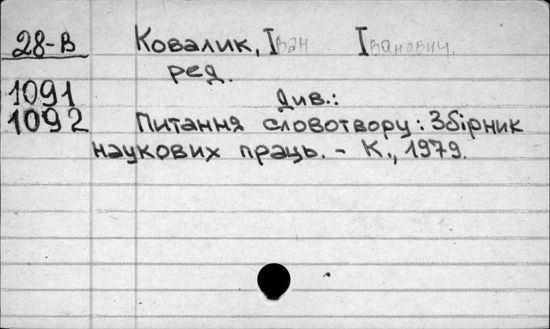 28-В Ковалик, Іван Іванович.
ред.
1091 Див.:
1092 Питання словотвору: Збірник
наукових праць. - К., 1979.